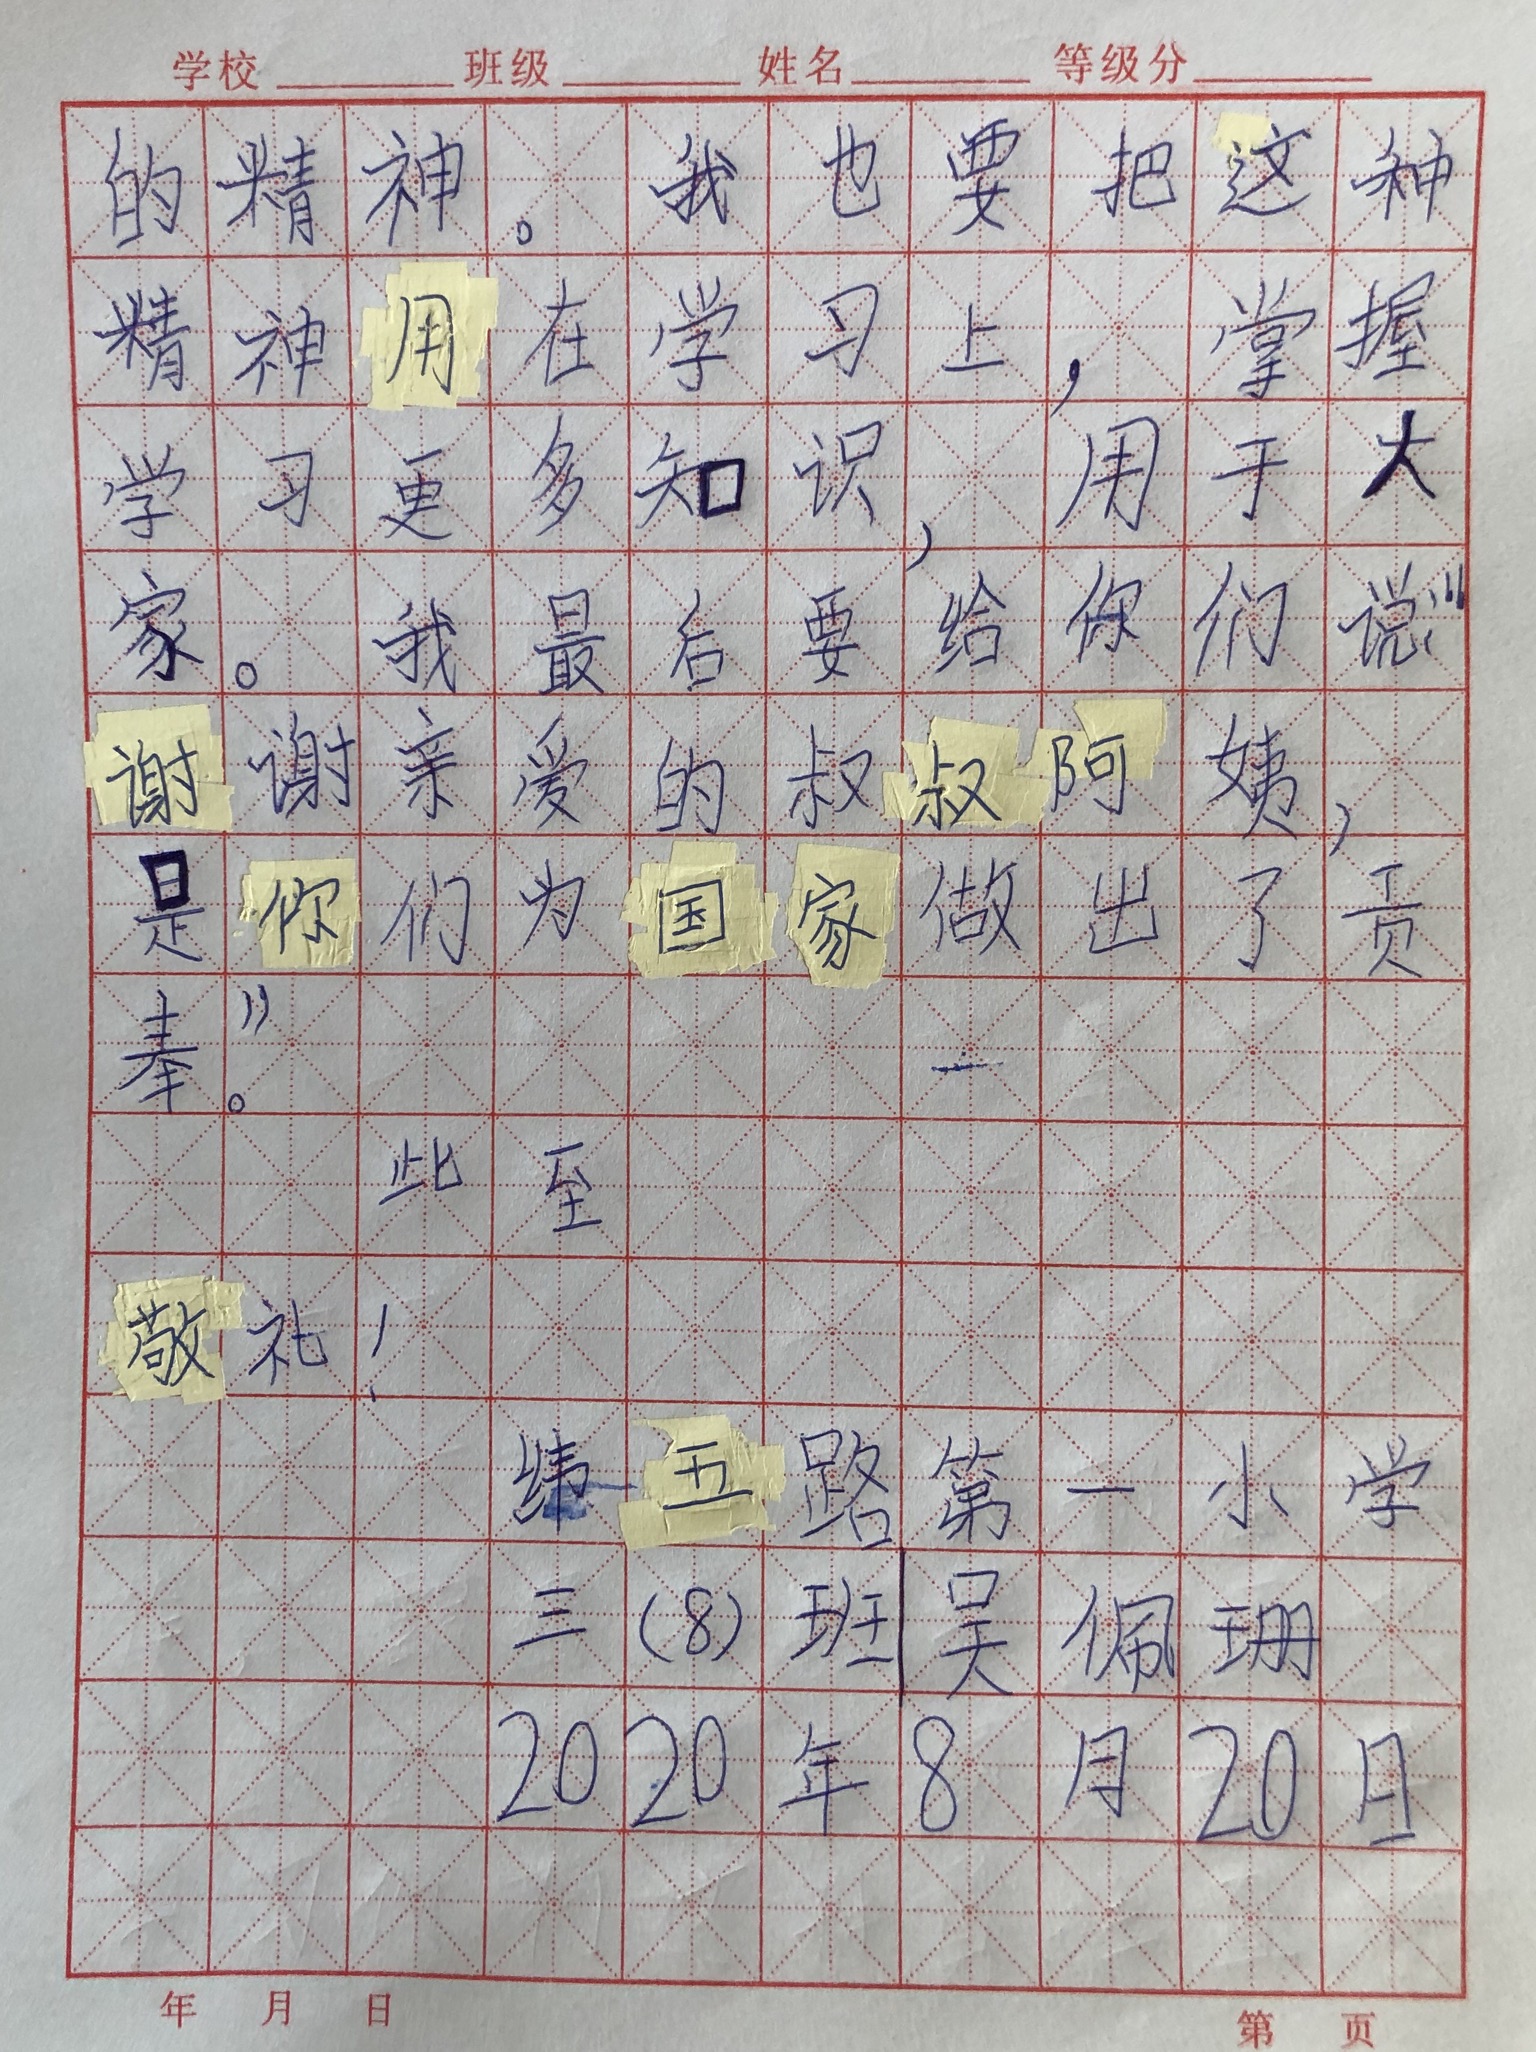 学校 班级 姓名 等级分
的精神。我也要把这种
精神用在学习上，掌握
学习更多知识，用于大
家。我最后要给你们说：“
谢谢亲爱的叔叔阿姨，
是你们为国家做出了贡
奉。”
此至
敬礼！
纬五路第一小学
三(8)班吴佩珊
2020年8月20日
年 月 日 第 页